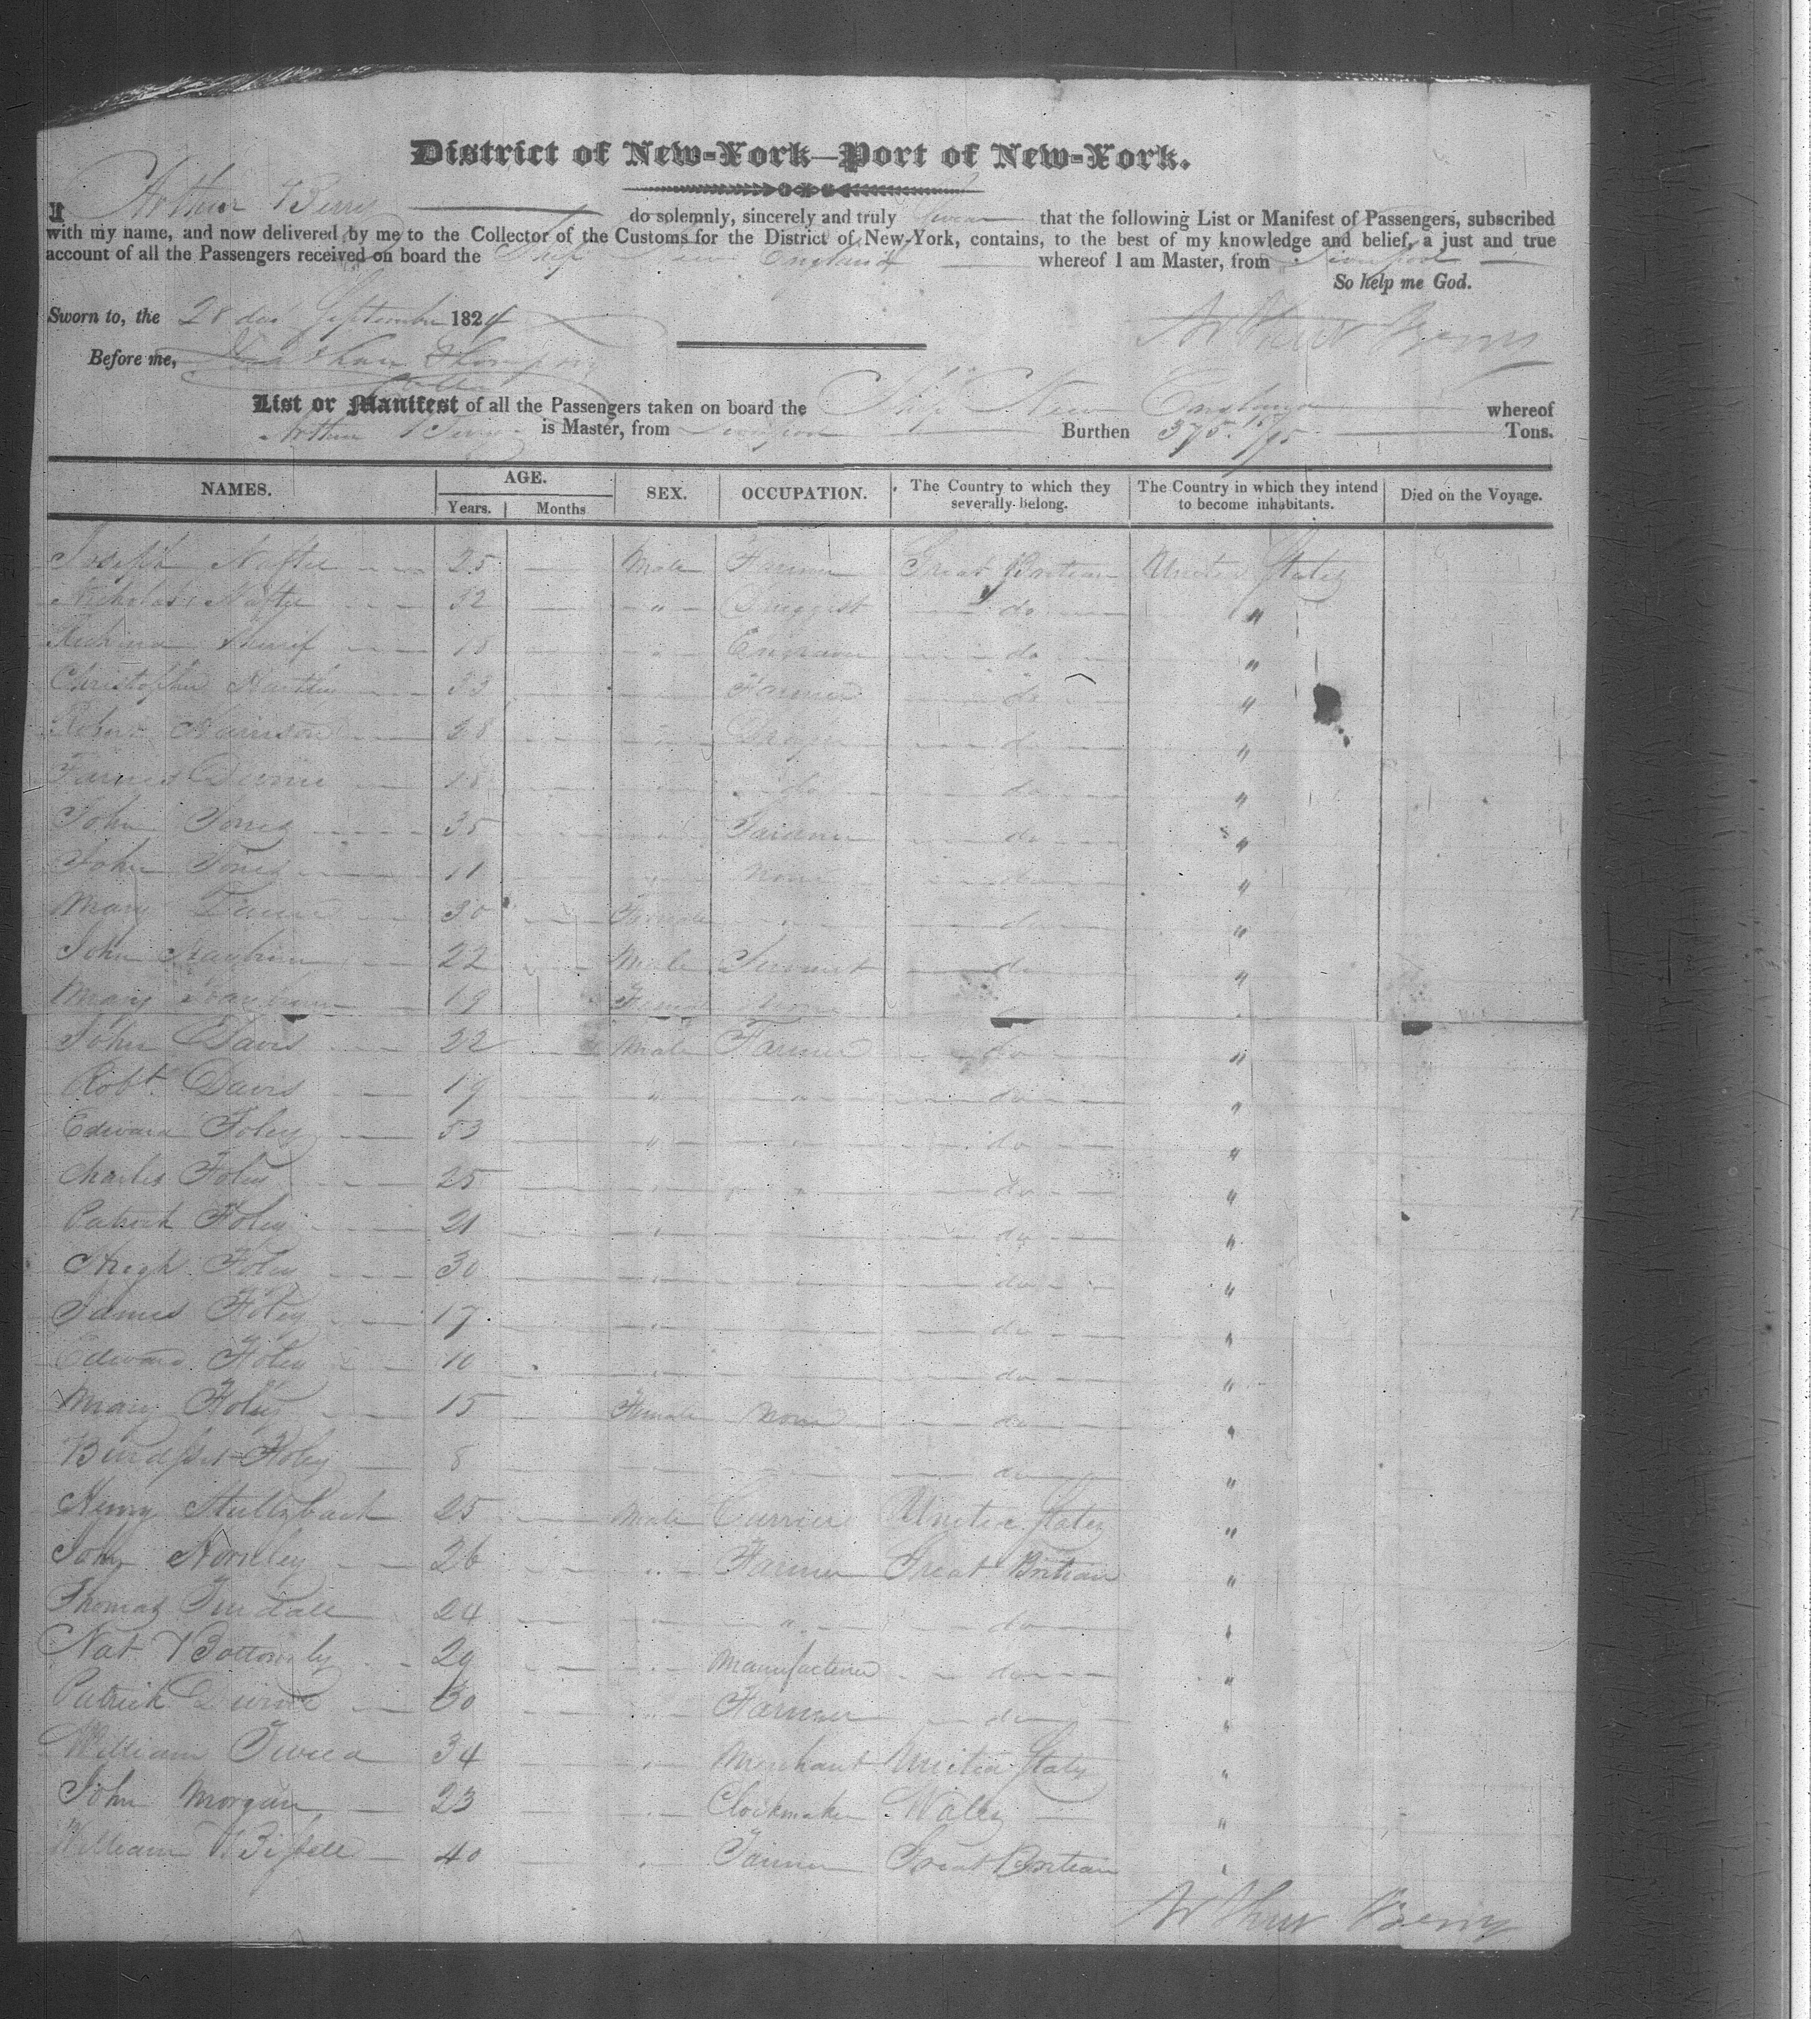 District of New-York—Port of New-York.
I Arthur Berry do solemnly, sincerely and truly swear that the following List or Manifest of Passengers, subscribed
with my name, and now delivered by me to the Collector of the Customs for the District of New-York, contains, to the best of my knowledge and belief, a just and true
account of all the Passengers received on board the Ship New England whereof I am Master, from Liverpool
So help me God.
Sworn to, the 28 day September 1824
Arthur Berry
Before me, Jonathan Thompson
List or Manifest of all the Passengers taken on board the Ship New England whereof
Arthur Berry is Master, from Liverpool Burthen 375 /95 Tons.
NAMES. AGE. SEX. OCCUPATION. The Country to which they severally belong. The Country in which they intend to become inhabitants. Died on the Voyage.
Years. Months
Joseph 25 Male Farmer Great Britian United States
Nicholas 32 " Druggist do "
18 do "
Christopher Hartley 33 Farmer do "
Robert Harrison 28 Draper do "
18 do do "
John Jones 35 do "
John Jones 11 None do "
Mary 30 Female do "
John 22 Male Servant do "
Mary 19 Female
John Davis 22 Male Farmer do "
Robt Davis 19 " " do "
Edward Foley 53 " " do "
Charles Foley 25 " " do "
Patrick Foley 21 " do "
Hugh Foley 30 " do "
James Foley 17 " do "
Edward Foley 10 do "
Mary Foley 15 Female None do "
Foley 8 do "
Henry 25 Male Currier United States "
John Hornley 26 " Farmer Great Britian "
Thomas Tindall 24 " " do "
Nat Bottomley 29 " Manufacturer do "
Patrick 30 " Farmer do "
William Tweed 34 " Merchant United States "
John Morgan 23 " Clockmaker Wales "
William Bissell 40 " Great Britian "
Arthur Berry